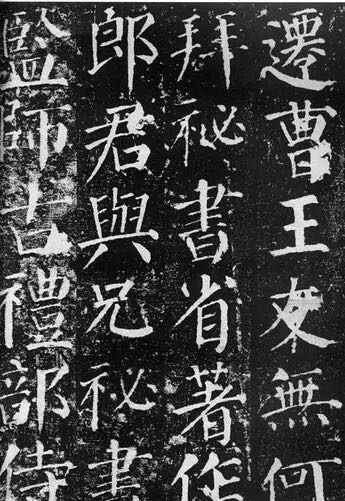 遷曹王友無何
拜祕書省著作
郎君與兄祕書
監師古禮部侍